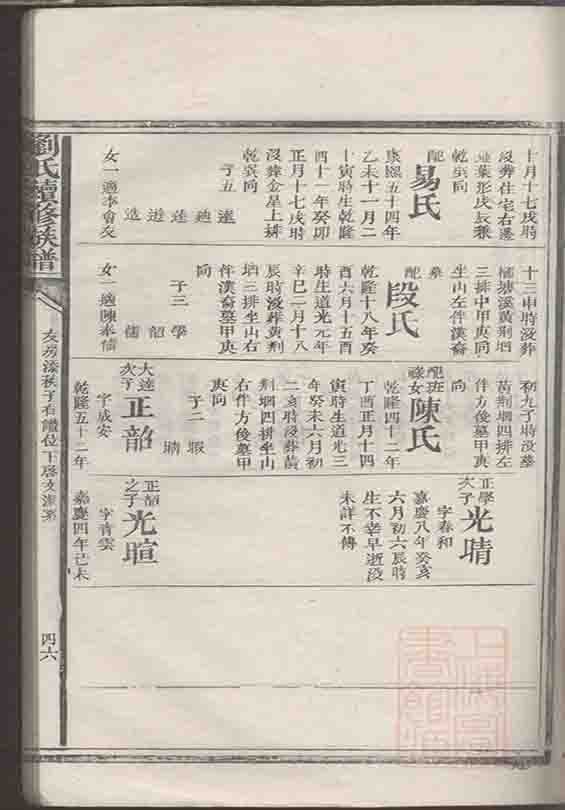 十月十七戌時
沒葬住宅右邊
蓮葉形戌辰兼
乾巽向
配
易氏
康熙五十四年
乙未十一月二
十寅時生乾隆
四十一年癸卯
正月十七戌時
沒葬金星上排
乾巽向
子五
達
迪
達
遊
造
女一適李會友
十三申時沒葬
楠塘溪黃荆堋
三排中甲庚同
坐山左伴漢裔
墓
配
段氏
乾隆十八年癸
酉六月十五酉
時生道光元年
辛巳二月十八
辰時沒葬黃荆
堋三排坐山右
伴漢裔墓甲庚
向
子三
學
韶
儒
女一適陳奉儒
初九子時沒墓
黃荆堋四排左
伴方後墓甲庚
向
配班
祿女
陳氏
乾隆四十二年
丁酉正月十四
寅時生道光三
年癸未六月初
二亥時沒葬黃
荆堋四排坐山
右伴方後墓甲
庚向
子二
暇
睛
大達
次子
正韶
字成安
乾隆五十二年
正學
次子
光晴
字春和
嘉慶八年癸亥
六月初六辰時
生不幸早逝沒
未詳不傳
正韶
之子
光暄
字青雲
嘉慶四年己未
劉氏續修族譜
四六